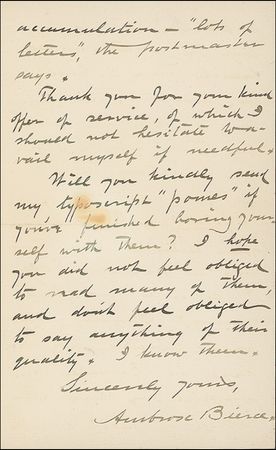 accumulation — "lots of
letters", the postmaster
says.
Thank you for your kind
offer of service, of which I
should not hesitate to a-
vail myself if needful.
Will you kindly send
my typoscript "pomes" if
you've finished boring your-
self with them? I hope
you did not feel obliged
to read many of them,
and don't feel obliged
to say anything of their
quality. I know them.
Sincerely yours,
Ambrose Bierce.